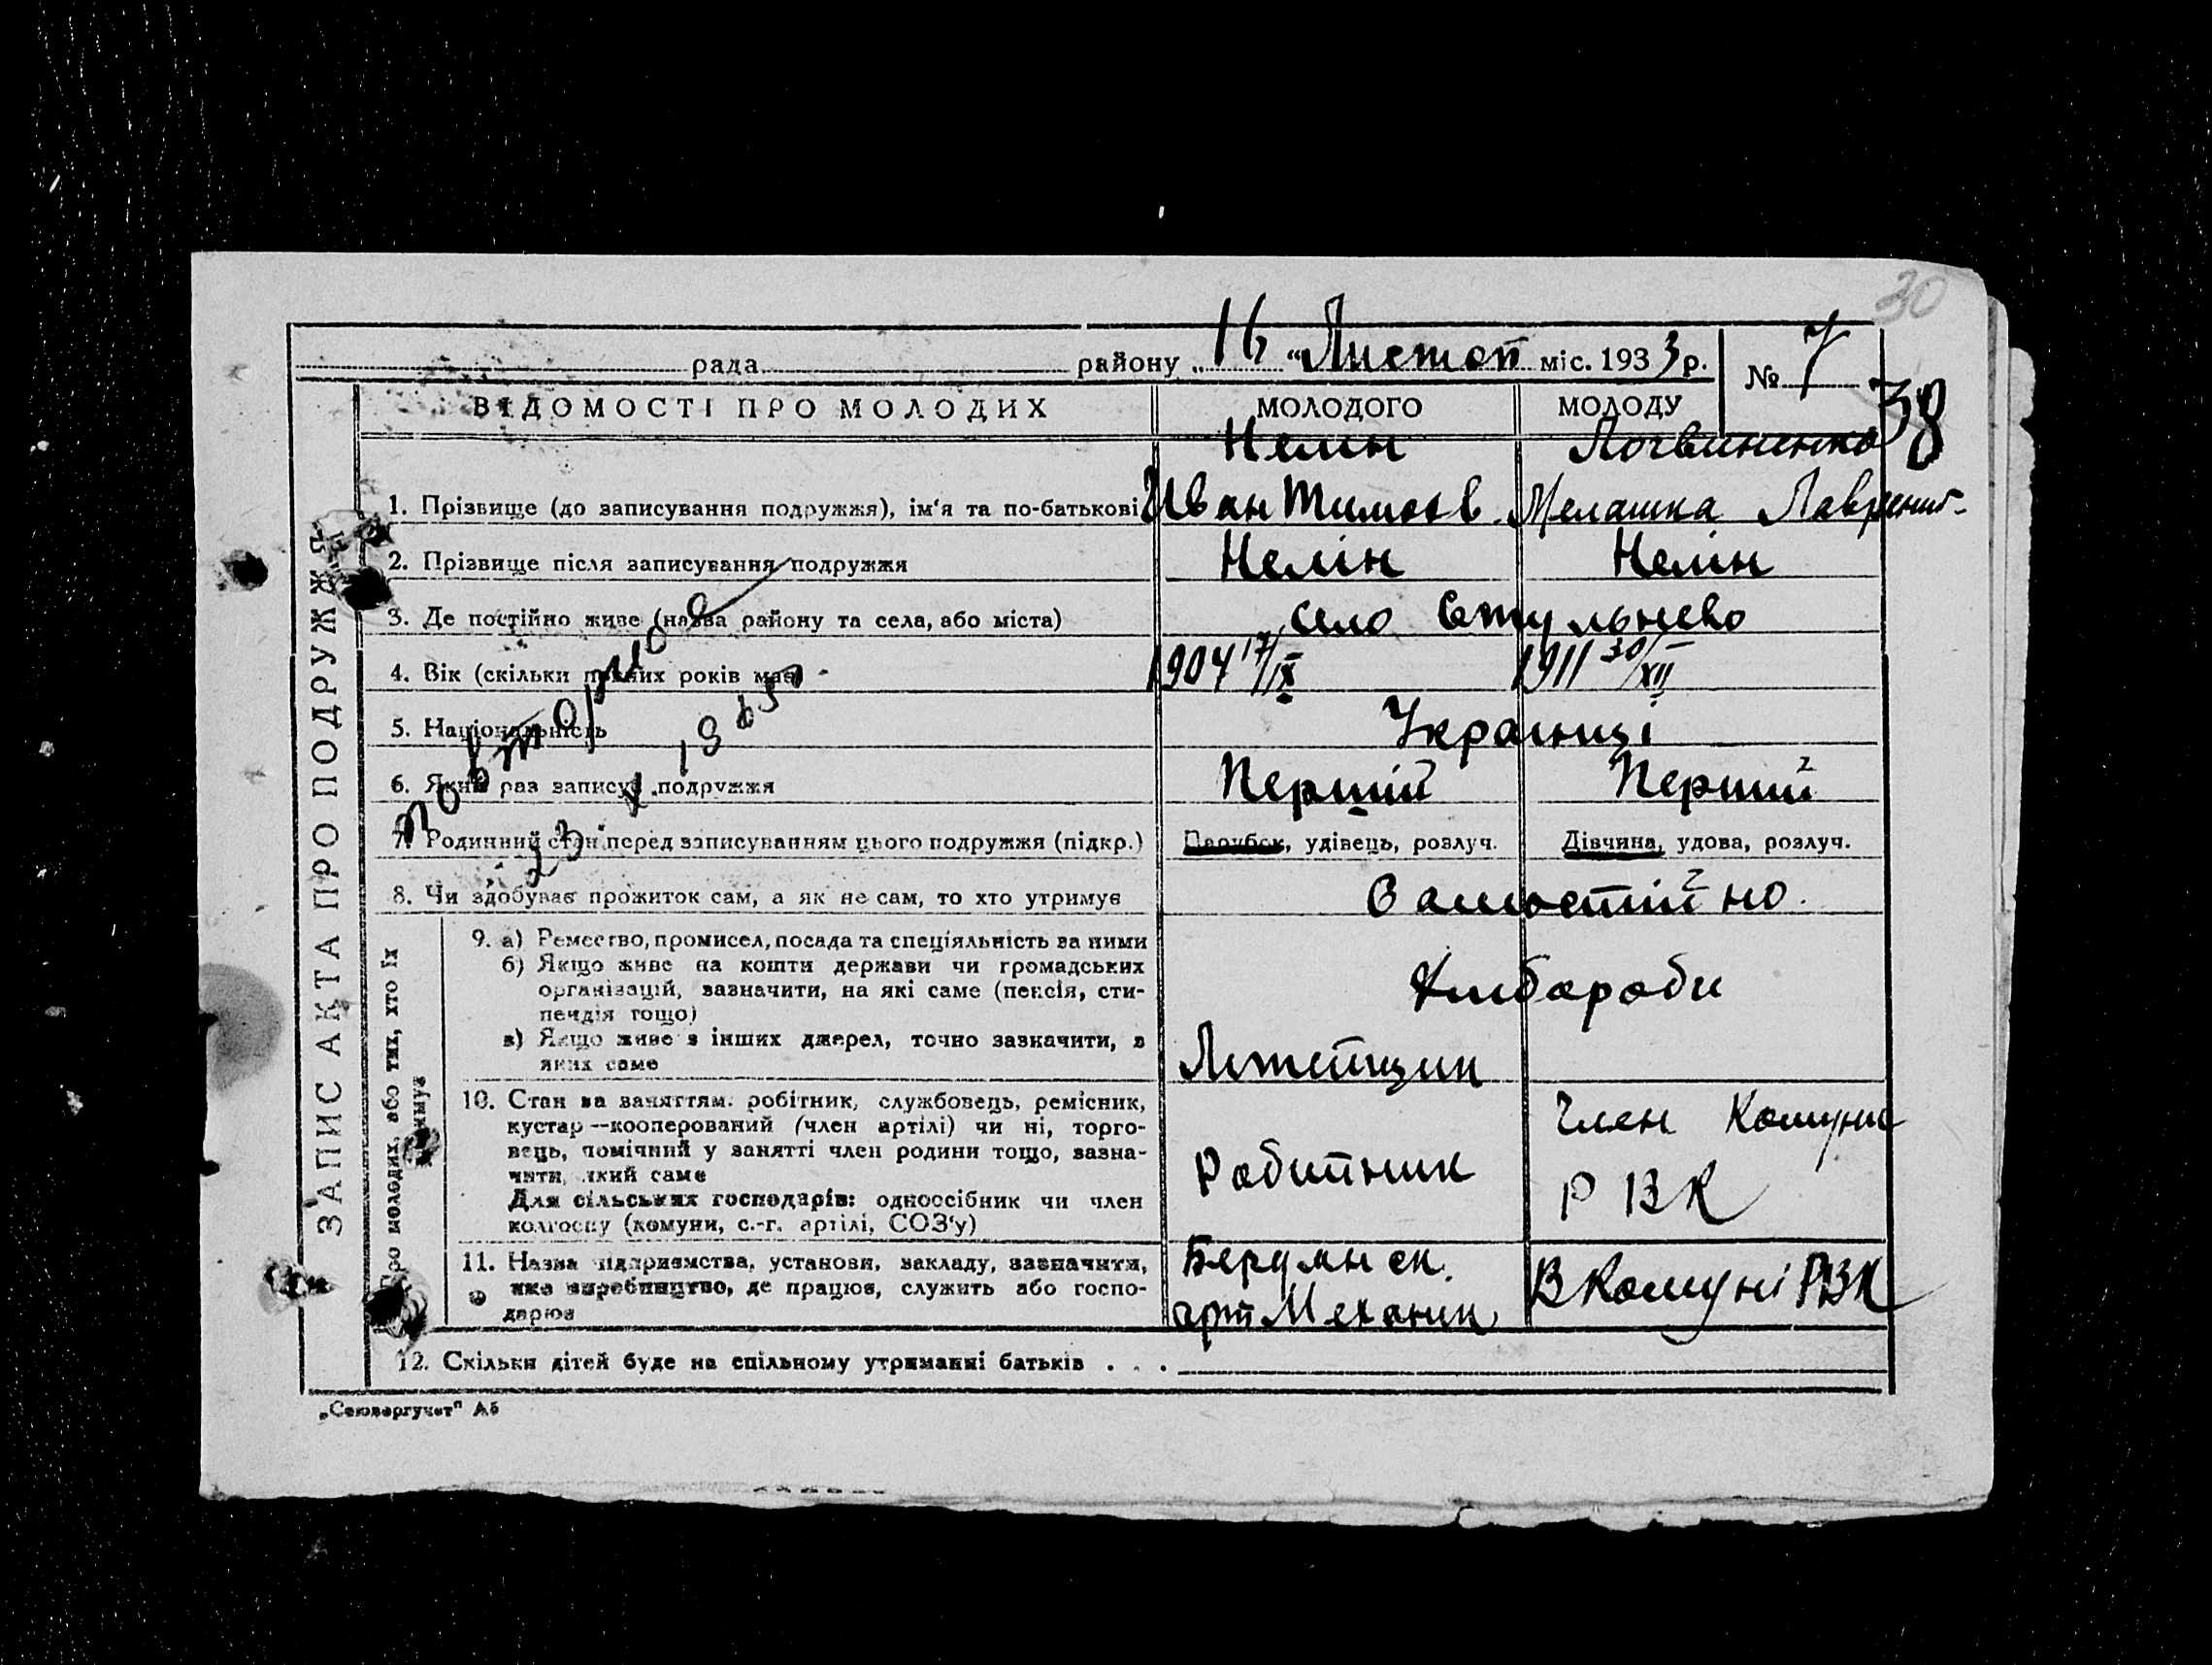 30
рада району „ 16 “ Листоп міс. 1933 р. № 7
38
ВІДОМОСТІ ПРО МОЛОДИХ МОЛОДОГО МОЛОДУ
Нелин Логвиненко
1. Прізвище (до записування подружжя), ім‘я та по-батькові Иван Тимоов. Мелашка Лаврент-
2. Прізвище після записування подружжя Нелін Нелін
3. Де постійно живе (назва району та села, або міста) село Стульнево
4. Вік (скільки повних років має) 1904 17/IX 1911 30/XII
5. Національність Украінці
6. Який раз записує подружжя Перший Перший
7. Родинний стан перед записуванням цього подружжя (підкр.) Парубок, удівець, розлуч. Дівчина, удова, розлуч.
8. Чи здобуває прожиток сам, а як не сам, то хто утримує Самостійно.
повторно
23 X 1965
ЗАПИС АКТА ПРО ПОДРУЖЖЯ
Про молодих, або тих, хто їх
9. а) Ремество, промисел, посада та спеціяльність за ними
б) Якщо живе на кошти держави чи громадських
організацій, зазначити, на які саме (пенсія, сти-
пендія тощо)
Хлібороби
в) Якщо живе з інших джерел, точно зазначити, з
яких саме
Литейщик
10. Стан за заняттям: робітник, службовець, ремісник,
кустар—кооперований (член артілі) чи ні, торго-
вець, помічний у занятті член родини тощо, зазна-
чити, який саме
Для сільських господарів: одноосібник чи член
колгоспу (комуни, с.-г. артілі, СОЗ‘у)
Робитник
Член Комуни
РВК
11. Назва підприємства, установи, закладу, зазначити,
яке виробництво, де працює, служить або госпо-
дарює
Бердянск.
арт Механик
В Комуні РВК
12. Скільки дітей буде на спільному утриманні батьків . . .
„Союзоргучет“ А5